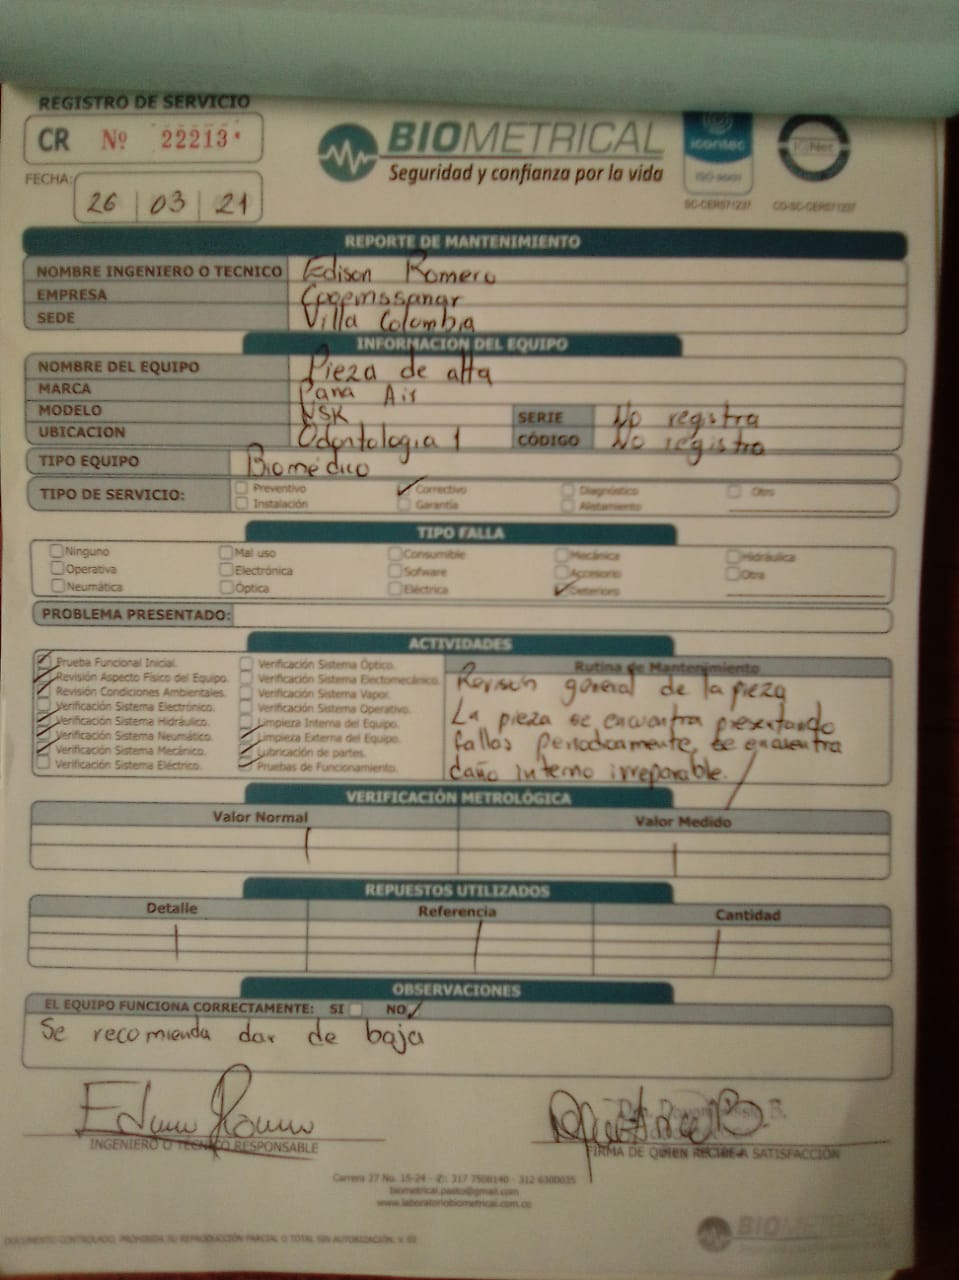 REGISTRO DE SERVICIO
CR Nº 22213
FECHA: 26 03 21
BIOMETRICAL
Seguridad y confianza por la vida
icontec
ISO 9001
SC-CER571237
IQNet
CO-SC-CER571237
REPORTE DE MANTENIMIENTO
NOMBRE INGENIERO O TECNICO Edison Romero
EMPRESA Cooemssanar
SEDE Villa Colombia
INFORMACION DEL EQUIPO
NOMBRE DEL EQUIPO Pieza de alta
MARCA Pana Air
MODELO NSK SERIE No registra
UBICACION Odontologia 1 CÓDIGO No registra
TIPO EQUIPO Biomédico
TIPO DE SERVICIO: Preventivo Correctivo Diagnóstico Otro
Instalación Garantía Alistamiento
TIPO FALLA
Ninguno Mal uso Consumible Mecánica Hidráulica
Operativa Electrónica Sofware Accesorio Otra
Neumática Óptica Eléctrica Deterioro
PROBLEMA PRESENTADO:
ACTIVIDADES
Prueba Funcional Inicial.
Revisión Aspecto Físico del Equipo.
Revisión Condiciones Ambientales.
Verificación Sistema Electrónico.
Verificación Sistema Hidráulico.
Verificación Sistema Neumático.
Verificación Sistema Mecánico.
Verificación Sistema Eléctrico.
Verificación Sistema Óptico.
Verificación Sistema Electomecánico.
Verificación Sistema Vapor.
Verificación Sistema Operativo.
Limpieza Interna del Equipo.
Limpieza Externa del Equipo.
Lubricación de partes.
Pruebas de Funcionamiento.
Rutina de Mantenimiento
Revisión general de la pieza
La pieza se encuentra presentando
fallos periodicamente, se encuentra
daño interno irreparable.
VERIFICACIÓN METROLÓGICA
Valor Normal Valor Medido
REPUESTOS UTILIZADOS
Detalle Referencia Cantidad
OBSERVACIONES
EL EQUIPO FUNCIONA CORRECTAMENTE: SI NO
Se recomienda dar de baja
INGENIERO O TÉCNICO RESPONSABLE
FIRMA DE QUIEN RECIBE A SATISFACCIÓN
Carrera 27 No. 15-24 - 317 7508140 - 312 6300035
biometrical.pasto@gmail.com
www.laboratoriobiometrical.com.co
BIOMETRICAL
DOCUMENTO CONTROLADO, PROHIBIDA SU REPRODUCCIÓN PARCIAL O TOTAL SIN AUTORIZACIÓN.